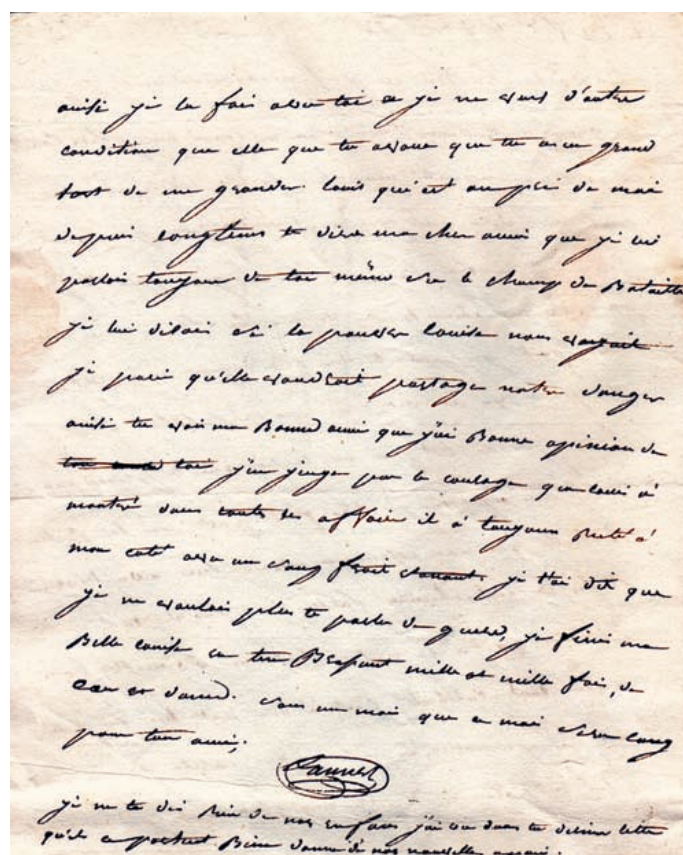 ainsi je la fais avec toi et je ne veux d'autre
condition que celle que tu avoue que tu a eu grand
tort de me gronder. louis qui est auprè de moi
depuis longtems te dira ma cher amie que je lui
parlois toujour de toi même sur le champ de Bataille
je lui disois si la pauvre louise nous voyoit
je pari qu'elle voudroit partage notre danger
ainsi tu vois ma Bonne amie que j'ai Bonne opinion de
toi j'en juge par le courage que louis à
montré dans toute les affaire il à toujour resté à
mon coté avec un sang froit etonant. je t'ai dit que
je ne voulois plus te parle de guere, je fini ma
Belle louise en te Brasant mille et mille fois, de
coeur et d'ame. dans un moi que ce moi sera long
pour ton ami,
Lannes
je ne te dis rien de nos enfans j'ai vu dans ta derniere lettre
qu'ils ce portent Bien donne de nos nouvelles